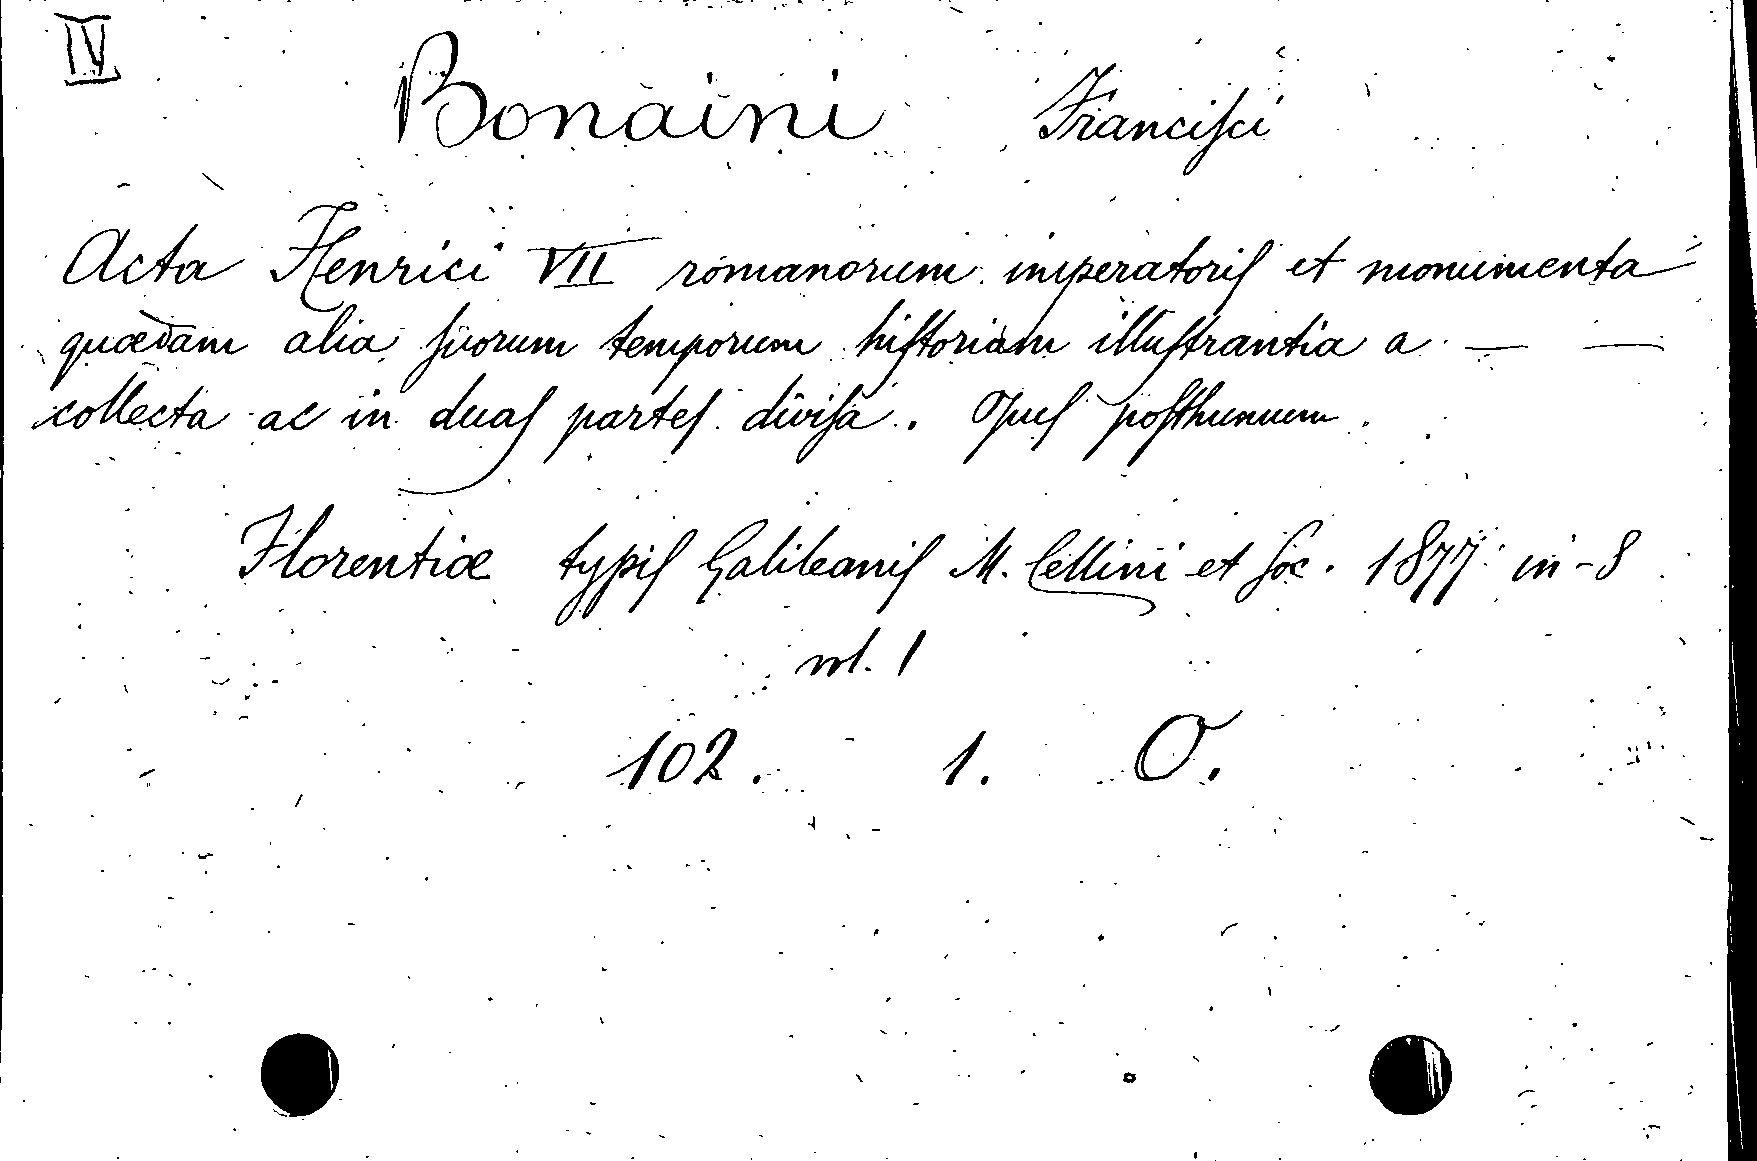 IV
Bonaini Franciſci
Acta Henrici VII romanorum imperatoriſ et monumenta
quædam alia ſuorum temporum hiſtoriam illuſtrantia a — —
collecta ac in duaſ parteſ diviſa. Opuſ poſthumum.
Florentiæ typiſ Galileaniſ M. Cellini et ſoc. 1877 in-8
vol. 1
102. 1. O.